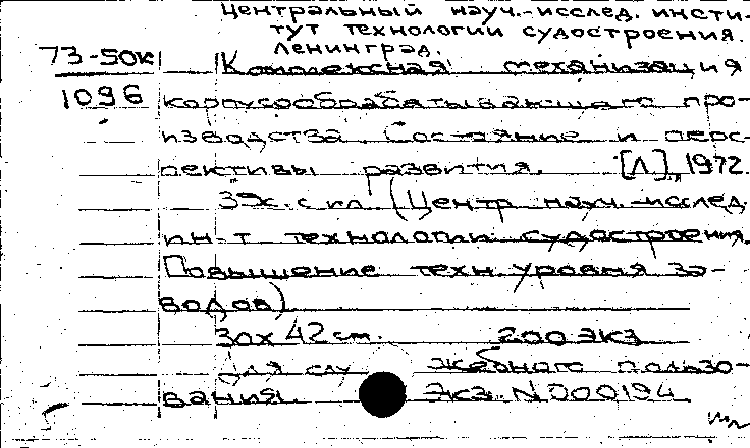 Центральный науч.-исслед. инсти-
тут технологии судостроения.
Ленинград.
73-50к Комплексная механизация
1096 корпусообрабатывающего про-
изводства. Состояние и перс-
пективы развития. [Л], 1972.
39с. с ил. (Центр. науч.-исслед.
ин-т технологии судостроения.
Повышение техн. уровня за-
водов)
30х42 см. 200 экз
Для служебного пользо-
вания. Экз. N 000194